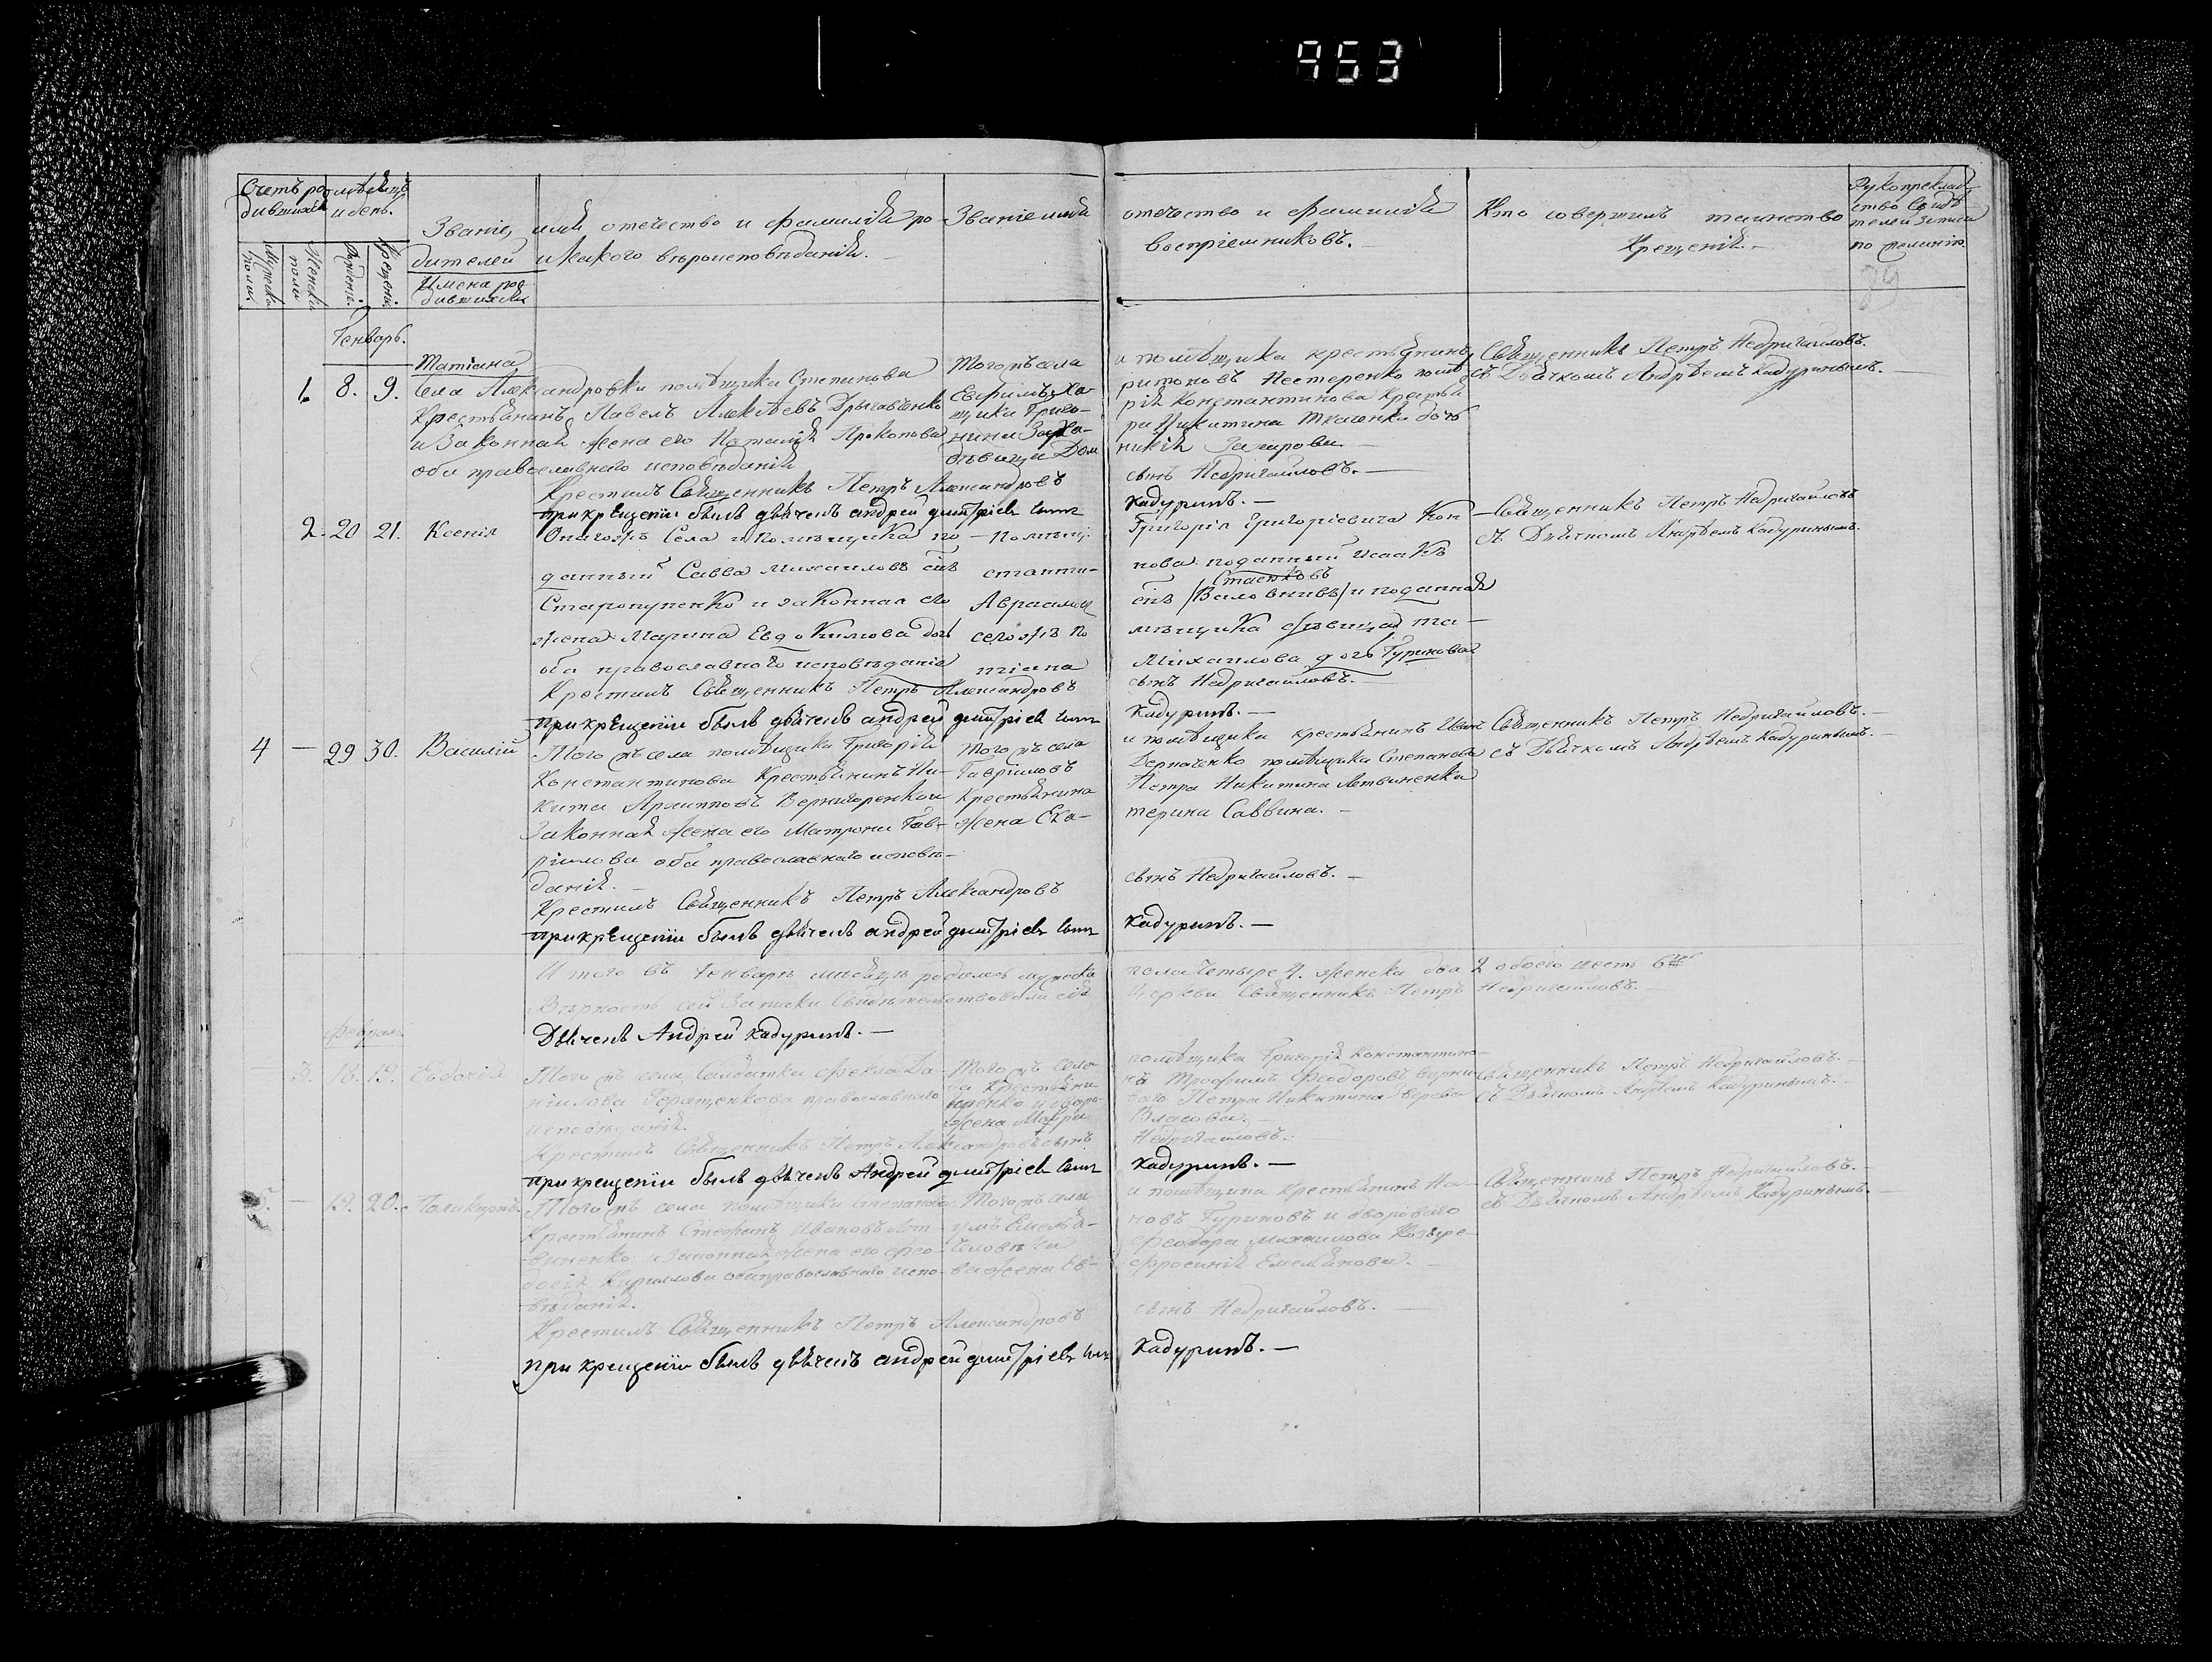 753
Счетъ ро
дившихся
мѣсяцъ
и день.
Званіе, имя отечество и фамилія ро
дителей и какого вѣроисповѣданія.
Имена ро
дившихся
Званіе имя
отечество и фамилія
воспріемниковъ.
Кто совершилъ таинство
Крещенія.
Рукоприклад
ство Свидѣ
телей записи
по желанію
Мужеска
полая
Женска
пола
Рожден:
Крещен:
89
Генварь.
Татіана
1. 8. 9.
села Александровки помѣщика Степанова
Крестьянинъ Павелъ Алексѣевъ
и законная жена его Наталія Прокопова
оба православнаго исповѣданія
Тогожъ села
Евфимъ Ха-
щика Григо-
нина Заха-
и помѣщика крестьянинъ
ритоновъ Нестеренко помѣ
рія Константинова Крестья
ра Никитина Ткаченка дочь
Священникъ Петръ Недригайловъ.
съ Дьячкомъ Андреемъ Кадуринымъ.
Крестилъ Священникъ Петръ Александровъ
сынъ Недригайловъ.
при крещеніи былъ дьячекъ андрей дмитріевъ сынъ
Кадуринъ.
2. 20 21. Ксенія
Онагожъ Села и помѣщика по
данный Савва михаиловъ снъ
Старопупенко и законная его
жена Марина Евдокимова дочь
оба православного исповѣданія
Помѣщ:
станти-
Авраамов
Григорія Григоріевича Кон
нова поданный Исаакъ
Стаенковъ
снъ /Валовникъ/ и поданная
мѣщика
Михаилова дочь Гуринова
Священникъ Петръ Недригайловъ
съ Дьячкомъ Андреемъ Кадуринымъ.
Крестилъ Священникъ Петръ Александровъ
сынъ Недригайловъ.
при крещеніи былъ дьячекъ андрей дмитріевъ сынъ
Кадуринъ.
4 — 29 30. Василій
Того жъ села помѣщика Григорія
Константинова Крестьянинъ Ни-
кита Архиповъ Вернигоренко и
Законная жена его Матрона Гав-
рилова оба православнаго исповѣ-
данія.
того жъ села
Гавріиловъ
Крестьянина
жена Ека-
и помѣщика крестьянинъ Иванъ
Дерпаченко помѣщика Степанова
Петра Никитина Литвиненка
терина Саввина.
Священникъ Петръ Недригайловъ.
съ Дьячкомъ Андреемъ Кадуринымъ.
Крестилъ Священникъ Петръ Александровъ
сынъ Недригайловъ.
при крещеніи былъ дьячекъ андрей дмитріевъ сынъ
Кадуринъ.
Итого въ Генварѣ мѣсяцѣ родилось мужеска
пола Четыре 4. женска два 2 обоего шесть 6
Вѣрность сей записки свидѣтельствовали сія
Церкви Священникъ Петръ Недригайловъ.
Дьячекъ Андрей Кадуринъ.
Феврал.
3. 18. 19. Евдокія
Того жъ села Солдатка Фекла Да-
ніилова Геращенкова православнаго
исповѣданія.
Того жъ села
жена Мавра
помѣщика Григорія Константино-
нъ Трофимъ Феодоровъ Верни
Власова.
Священникъ Петръ Недригайловъ.
съ Дьячкомъ Андреемъ Кадуринымъ.
Крестилъ Священникъ Петръ Александровъ сынъ
Недригайловъ.
при крещеніи былъ дьячекъ Андрей дмитріевъ сынъ
Кадуринъ.
— 19. 20. Поликарпъ
Того жъ села помѣщика Степанова
Крестьянинъ Стефанъ Ивановъ Лит-
виненко и законная жена его Фео-
досія Кириллова оба православнаго испо-
вѣданія.
Того жъ села
умъ Емелья-
ва жена Ев-
и помѣщика Крестьянинъ На-
новъ Гуриновъ и двороваго
Феодора михаилова
фросинія Емельянова.
Священникъ Петръ Недригайловъ.
съ Дьячкомъ Андреемъ Кадуринымъ.
Крестилъ Священникъ Петръ Александровъ
сынъ Недригайловъ.
при крещеніи былъ дьячекъ андрей дмитріевъ сынъ
Кадуринъ.